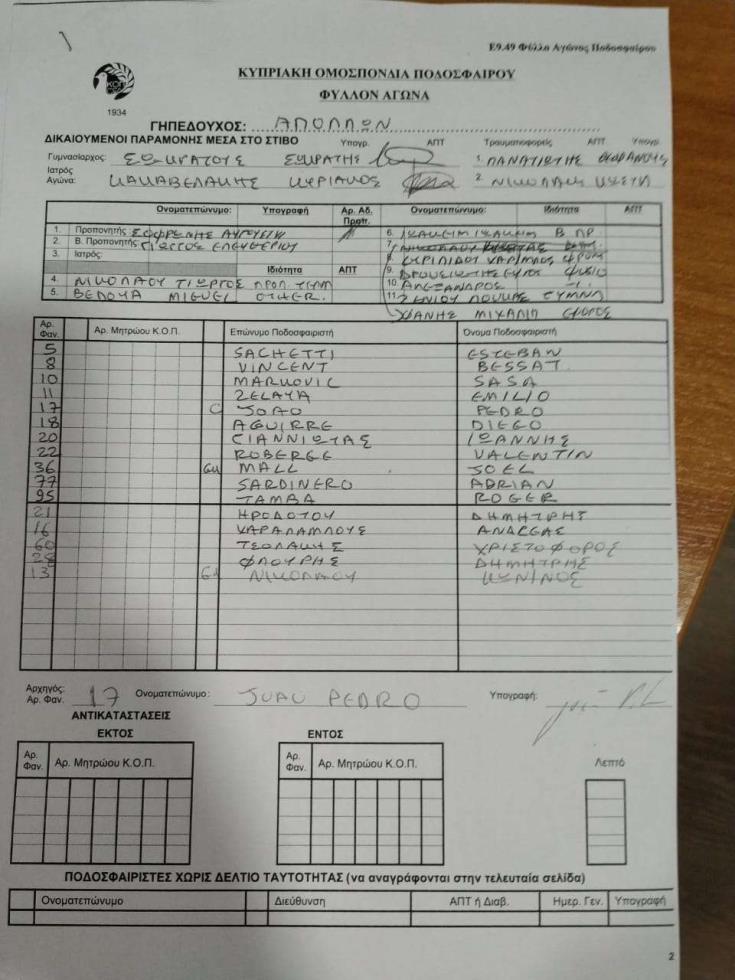 Ε9.49 Φύλλο Αγώνος Ποδοσφαίρου
ΚΟΠ
1934
ΚΥΠΡΙΑΚΗ ΟΜΟΣΠΟΝΔΙΑ ΠΟΔΟΣΦΑΙΡΟΥ
ΦΥΛΛΟΝ ΑΓΩΝΑ
ΓΗΠΕΔΟΥΧΟΣ: ΑΠΟΛΛΩΝ
ΔΙΚΑΙΟΥΜΕΝΟΙ ΠΑΡΑΜΟΝΗΣ ΜΕΣΑ ΣΤΟ ΣΤΙΒΟ Υπογρ. ΑΠΤ Τραυματιοφορείς ΑΠΤ Υπογρ.
Γυμνασίαρχος: ΣΩΚΡΑΤΟΥΣ ΣΩΚΡΑΤΗΣ 1. ΠΑΝΑΓΙΩΤΗΣ
Ιατρός Αγώνα: ΚΑΚΑΒΕΛΑΚΗΣ ΚΥΡΙΑΚΟΣ 2. ΝΙΚΟΛΑΣ
Ονοματεπώνυμο: Υπογραφή Αρ. Αδ. Προπ. Ονοματεπώνυμο: Ιδιότητα ΑΠΤ
1. Προπονητής: ΣΩΦΡΟΝΗΣ ΑΥΓΟΥΣΤΗ 6. ΙΩΑΚΕΙΜ ΙΩΑΚΕΙΜ Β ΠΡ
2. Β. Προπονητής: ΓΙΩΡΓΟΣ ΕΛΕΥΘΕΡΙΟΥ 7.
3. Ιατρός: 8. ΚΥΡΙΛΙΔΟΥ ΧΑΡΙΛΑΟΣ ΦΡΟΝ
Ιδιότητα ΑΠΤ 9. ΓΥΡΟΣ ΦΥΣΙΟ
4. ΝΙΚΟΛΑΟΥ ΓΙΩΡΓΟΣ ΠΡΟΠ ΤΕΡΜ 10. ΑΛΕΞΑΝΔΡΟΣ
5. BEDOYA MIGUEL OTHER. 11. ΞΕΝΙΟΥ ΛΟΥΚΑΣ ΓΥΜΝΑ
ΧΑΝΗΣ ΜΙΧΑΛΗ ΕΦΟΡΟΣ
Αρ. Φαν. Αρ. Μητρώου Κ.Ο.Π. Επώνυμο Ποδοσφαιριστή Όνομα Ποδοσφαιριστή
5 SACHETTI ESTEBAN
8 VINCENT BESSAT
10 MARKOVIC SASA
11 ZELAYA EMILIO
17 C JOAO PEDRO
18 AGUIRRE DIEGO
20 ΓΙΑΝΝΙΩΤΑΣ ΙΩΑΝΝΗΣ
22 ROBERGE VALENTIN
36 GK MALL JOEL
77 SARDINERO ADRIAN
95 TAMBA ROGER
21 ΗΡΟΔΟΤΟΥ ΔΗΜΗΤΡΗΣ
16 ΧΑΡΑΛΑΜΠΟΥΣ ΑΝΔΡΕΑΣ
60 ΤΣΟΛΑΚΗΣ ΧΡΙΣΤΟΦΟΡΟΣ
28 ΦΛΟΥΡΗΣ ΔΗΜΗΤΡΗΣ
13 GK ΝΙΚΟΛΑΟΥ ΚΩΝ/ΝΟΣ
Αρχηγός: Αρ. Φαν. 17 Ονοματεπώνυμο: JOAO PEDRO Υπογραφή:
ΑΝΤΙΚΑΤΑΣΤΑΣΕΙΣ
ΕΚΤΟΣ ΕΝΤΟΣ
Αρ. Φαν. Αρ. Μητρώου Κ.Ο.Π. Αρ. Φαν. Αρ. Μητρώου Κ.Ο.Π. Λεπτό
ΠΟΔΟΣΦΑΙΡΙΣΤΕΣ ΧΩΡΙΣ ΔΕΛΤΙΟ ΤΑΥΤΟΤΗΤΑΣ (να αναγράφονται στην τελευταία σελίδα)
Ονοματεπώνυμο Διεύθυνση ΑΠΤ ή Διαβ. Ημερ. Γεν. Υπογραφή
2